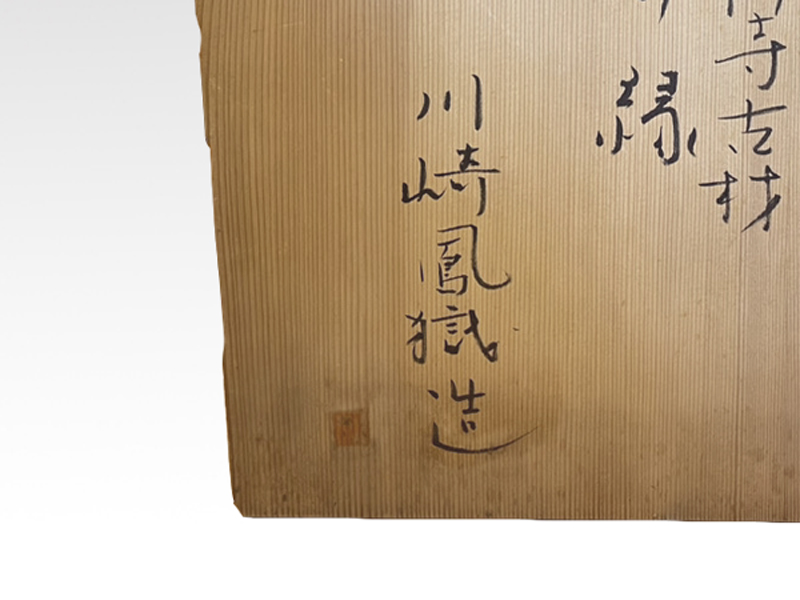 寺古材
縁
川崎鳳嶽造